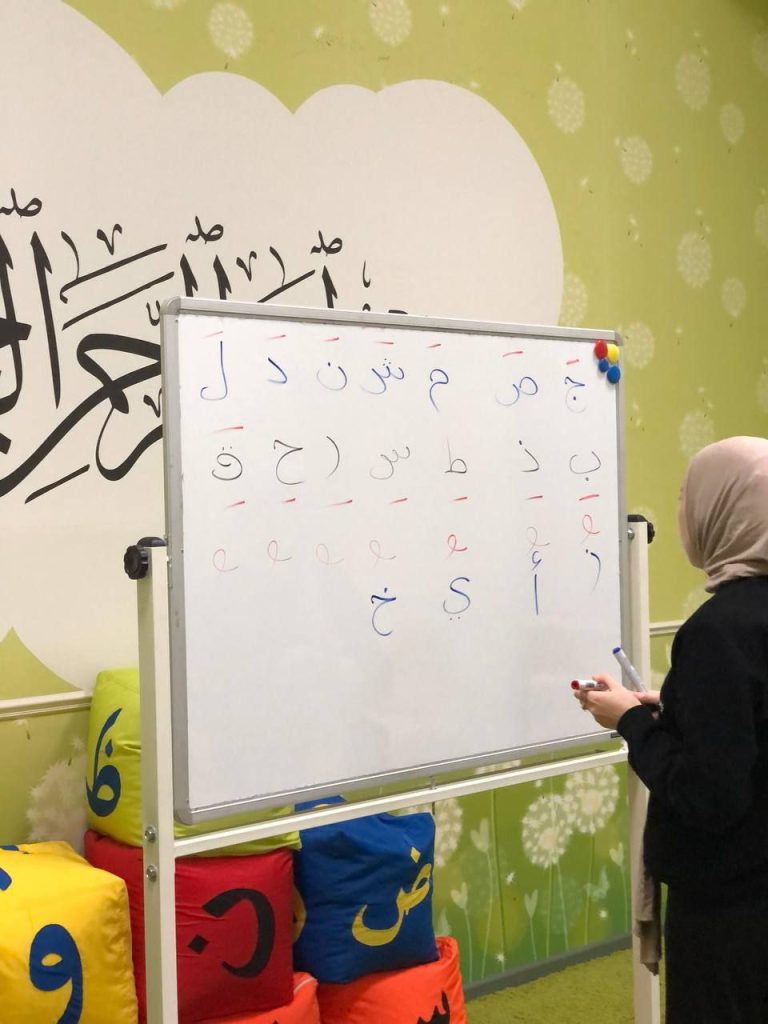 جَ صَ مَ شَ نَ دَ لَ
بِ ذِ طِ سِ رِ حِ قِ
زُ أُ يُ خُ
ظ
ن ض
و